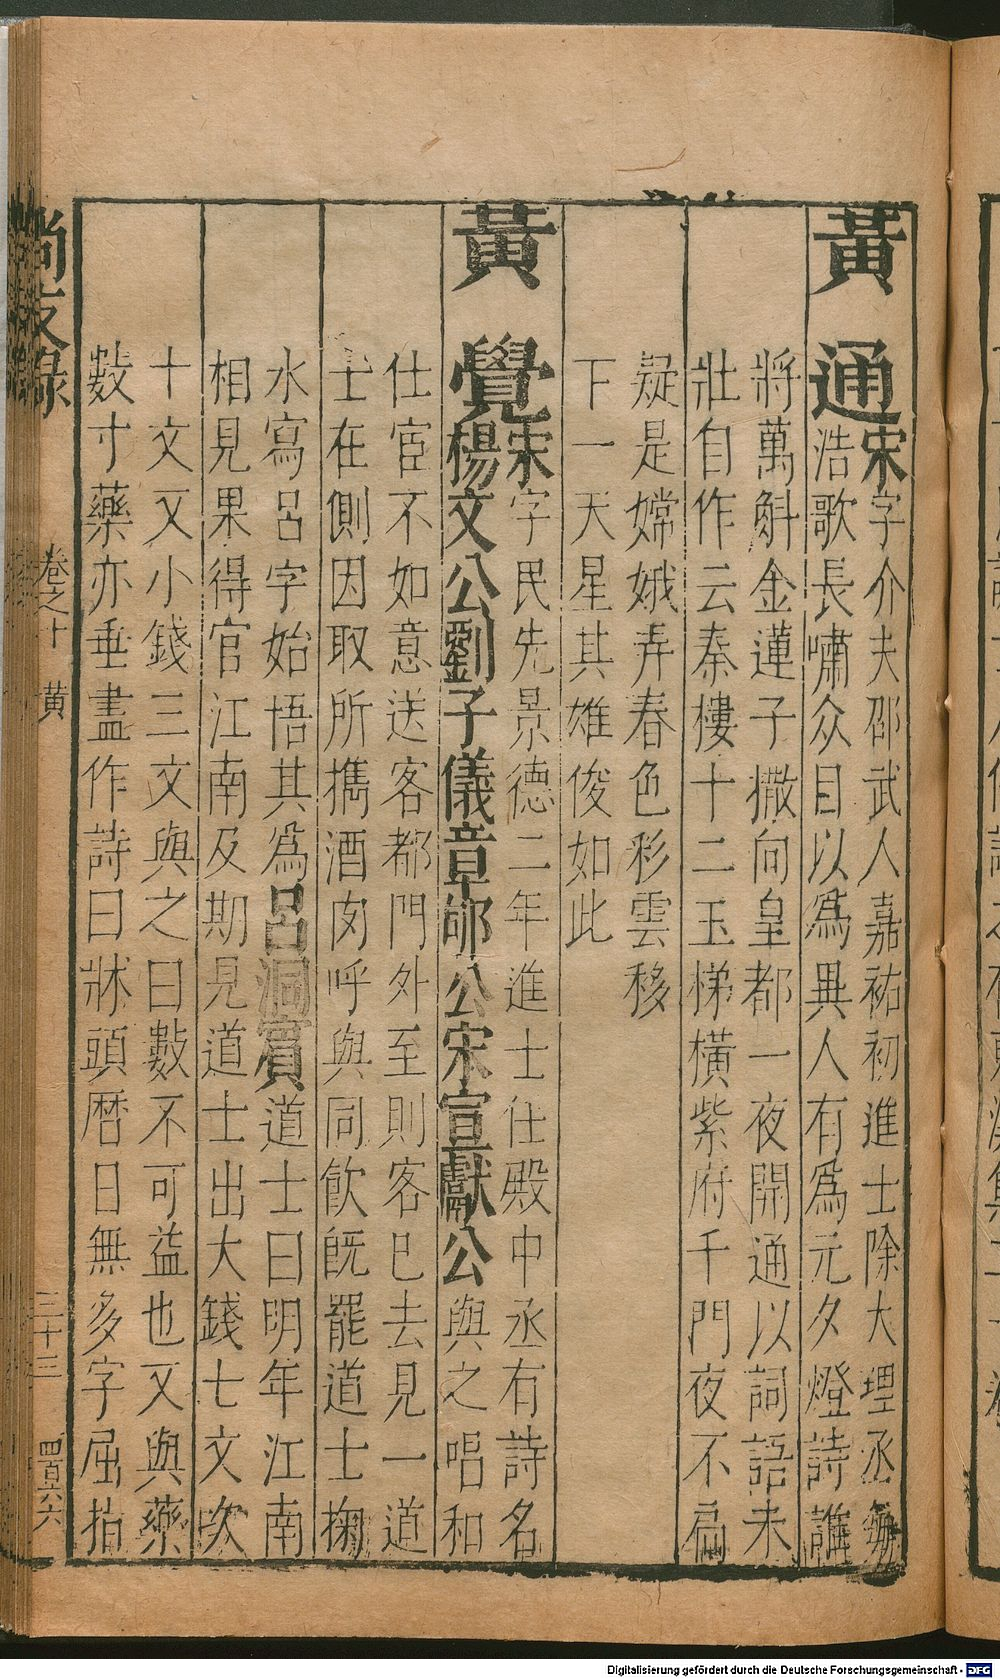 黃　通宋字介夫邵武人嘉祐初進士除大理丞每
浩歌長嘯众目以爲異人有爲元夕燈詩誰
將萬斛金蓮子撒向皇都一夜開通以詞語未
壯自作云秦樓十二玉梯橫紫府千門夜不扃
疑是嫦娥弄春色彩雲移
下一天星其雄俊如此
黃　覺宋字民先景德二年進士仕殿中丞有詩名
楊文公劉子儀章郇公宋宣獻公與之唱和
仕宦不如意送客都門外至則客已去見一道
士在側因取所携酒肉呼與同飲旣罷道士掬
水寫呂字始悟其爲呂洞賓道士曰明年江南
相見果得官江南及期見道士出大錢七文次
十文又小錢三文與之曰數不可益也又與藥
數寸藥亦垂盡作詩曰牀頭曆日無多字屈指
尚友錄　卷之十　黄　三十三　四百六六
Digitalisierung gefördert durch die Deutsche Forschungsgemeinschaft - DFG